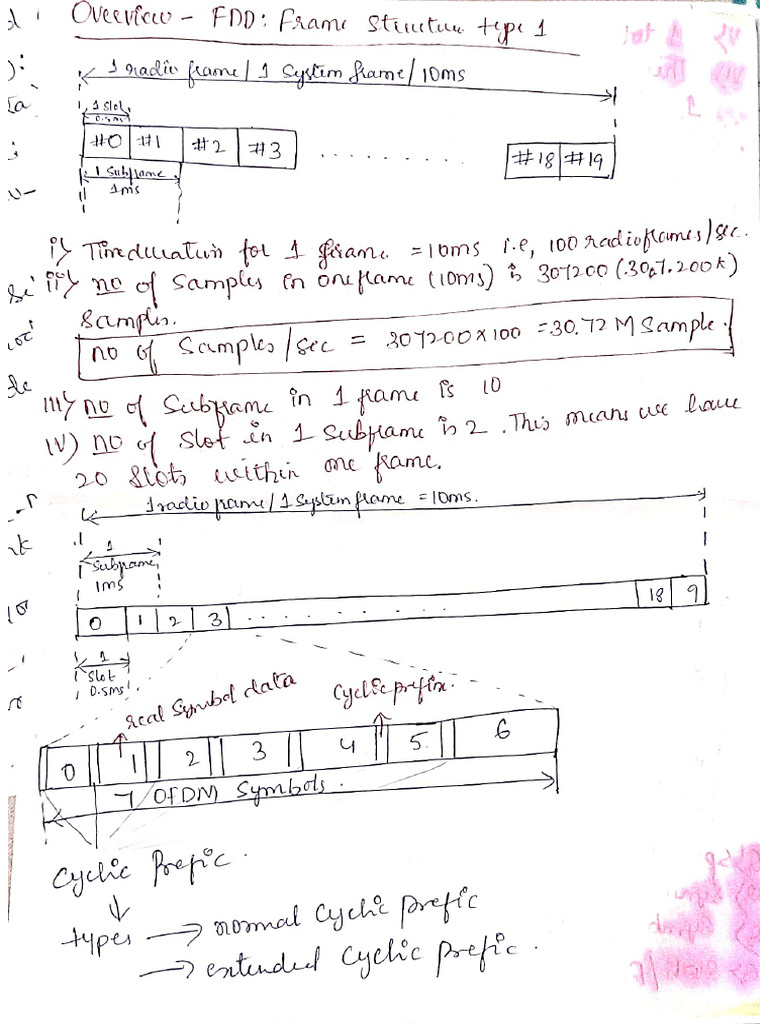 Overview - FDD: Frame Structure type 1
1 radio frame / 1 System frame / 10ms
1 slot
0.5ms
#0 #1 #2 #3 .......... #18 #19
1 Subframe
1ms
i) Time duration for 1 frame = 10ms i.e, 100 radioframes/sec.
ii) no of Samples in one frame (10ms) is 307200 (307.200K)
Samples.
no of Samples/sec = 307200x100 = 30.72 M Sample.
III) no of Subframe in 1 frame is 10
IV) no of Slot in 1 Subframe is 2. This means we have
20 Slots within one frame.
1 radio frame / 1 System frame = 10ms.
1
Subframe
1ms
0 1 2 3 .......... 18 9
1
Slot
0.5ms
real Symbol data
Cyclic prefix.
0 1 2 3 4 5 6
7 OFDM Symbols.
Cyclic Prefic.
types → normal Cyclic prefic
→ extended Cyclic prefic.